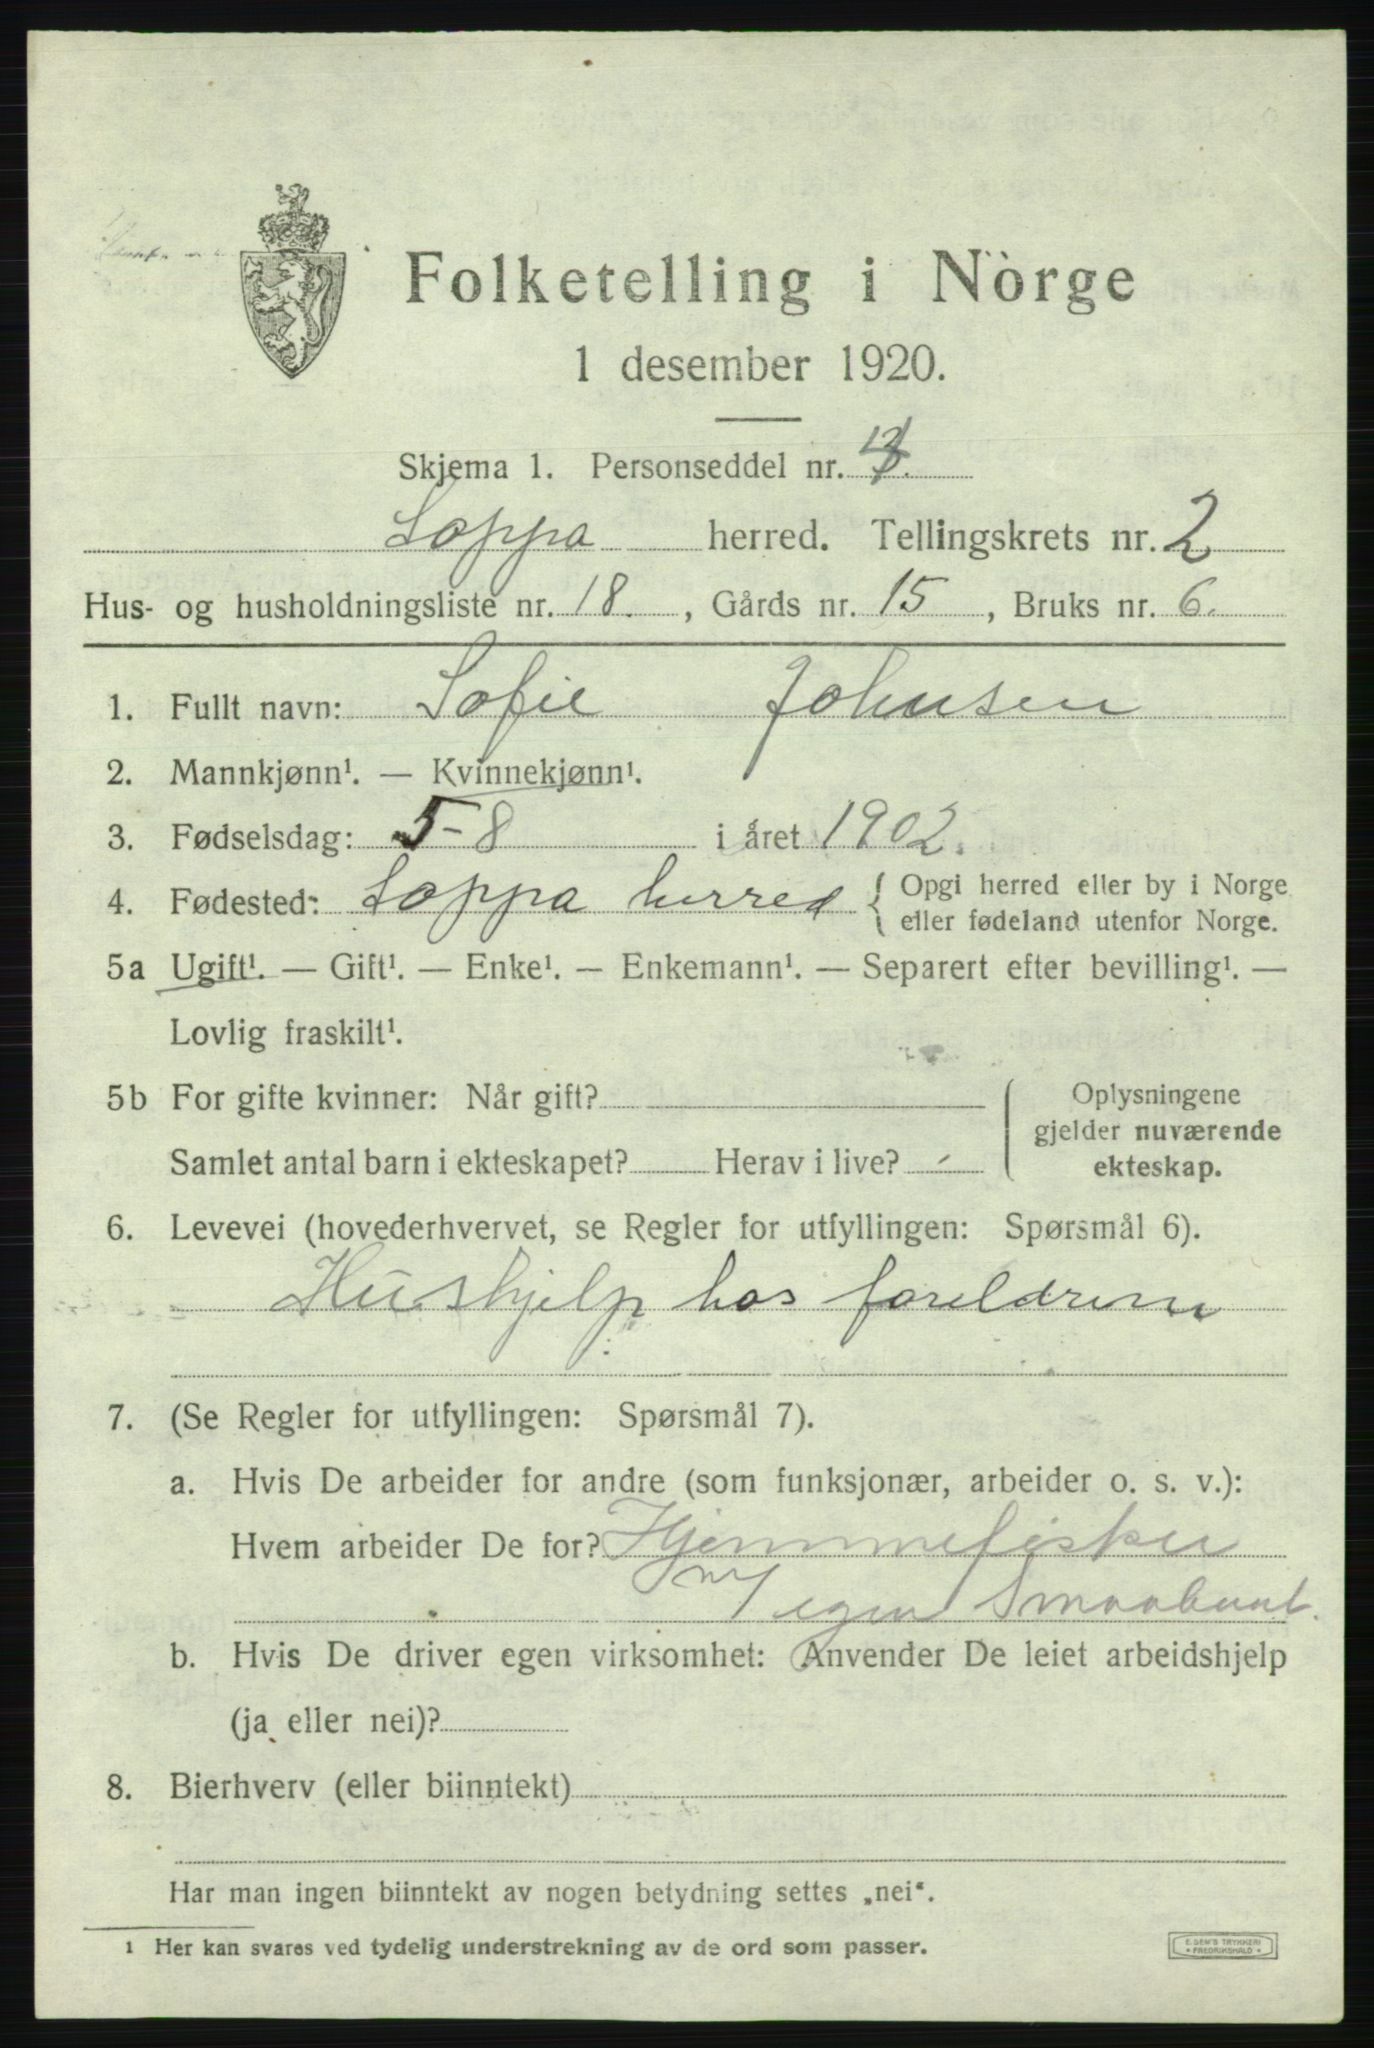 Folketelling i Norge
1 desember 1920.
Skjema 1. Personseddel nr.
Loppa herred. Tellingskrets nr. 2
Hus- og husholdningsliste nr. 18. , Gårds nr. 15 , Bruks nr. 6.
1. Fullt navn: Sofie Johnsen
2. Mannkjønn¹. — Kvinnekjønn¹.
3. Fødselsdag: 5-8 i året 1902.
4. Fødested: Loppa herred { Opgi herred eller by i Norge
eller fødeland utenfor Norge.
5a Ugift¹. — Gift¹. — Enke¹. — Enkemann¹. — Separert efter bevilling¹. —
Lovlig fraskilt¹.
5b For gifte kvinner: Når gift?
Samlet antal barn i ekteskapet? Herav i live? -
Oplysningene
gjelder nuværende
ekteskap.
6. Levevei (hovederhvervet, se Regler for utfyllingen: Spørsmål 6).
Hushjelp hos foreldrene
7. (Se Regler for utfyllingen: Spørsmål 7).
a. Hvis De arbeider for andre (som funksjonær, arbeider o. s. v.):
Hvem arbeider De for? Hjemmefisker
m/ egen Smaabaat.
b. Hvis De driver egen virksomhet: Anvender De leiet arbeidshjelp
(ja eller nei)?
8. Bierhverv (eller biinntekt)
Har man ingen biinntekt av nogen betydning settes „nei".
¹ Her kan svares ved tydelig understrekning av de ord som passer.
E. SEM'S TRYKKERI
• FREDRIKSHALD •